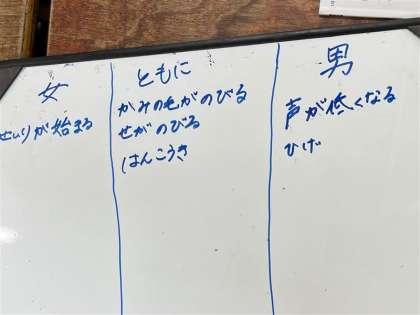 女
せいりが始まる
ともに
かみの毛がのびる
せがのびる
はんこうき
男
声が低くなる
ひげ